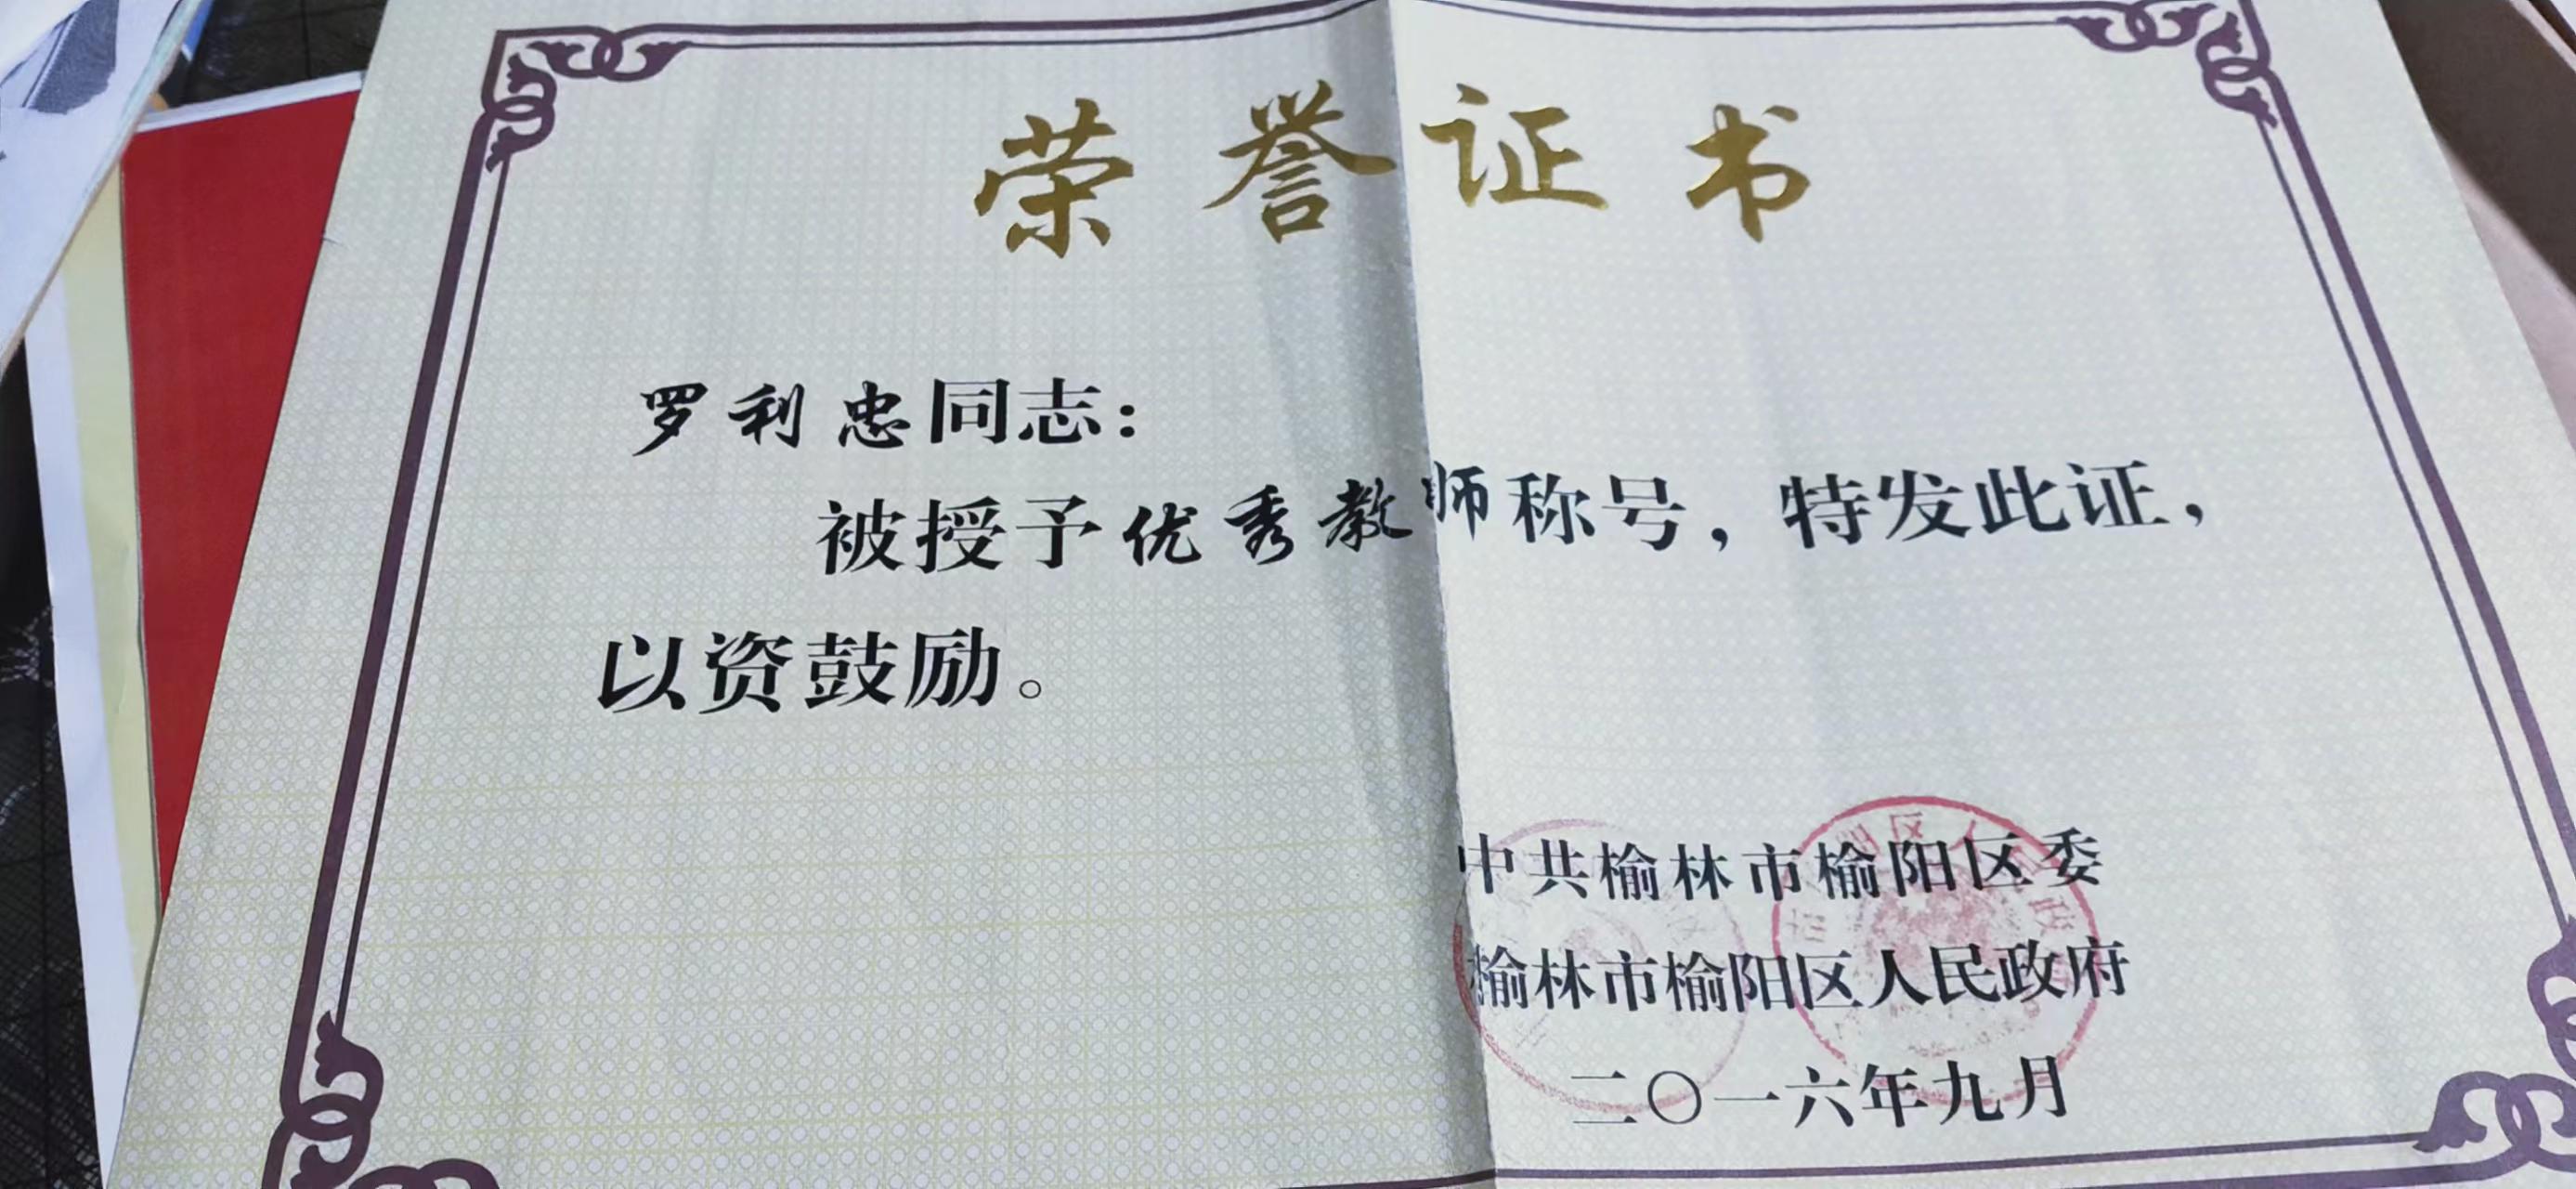 荣誉证书
罗利忠同志：
被授予优秀教师称号，特发此证，
以资鼓励。
中共榆林市榆阳区委
榆林市榆阳区人民政府
二〇一六年九月